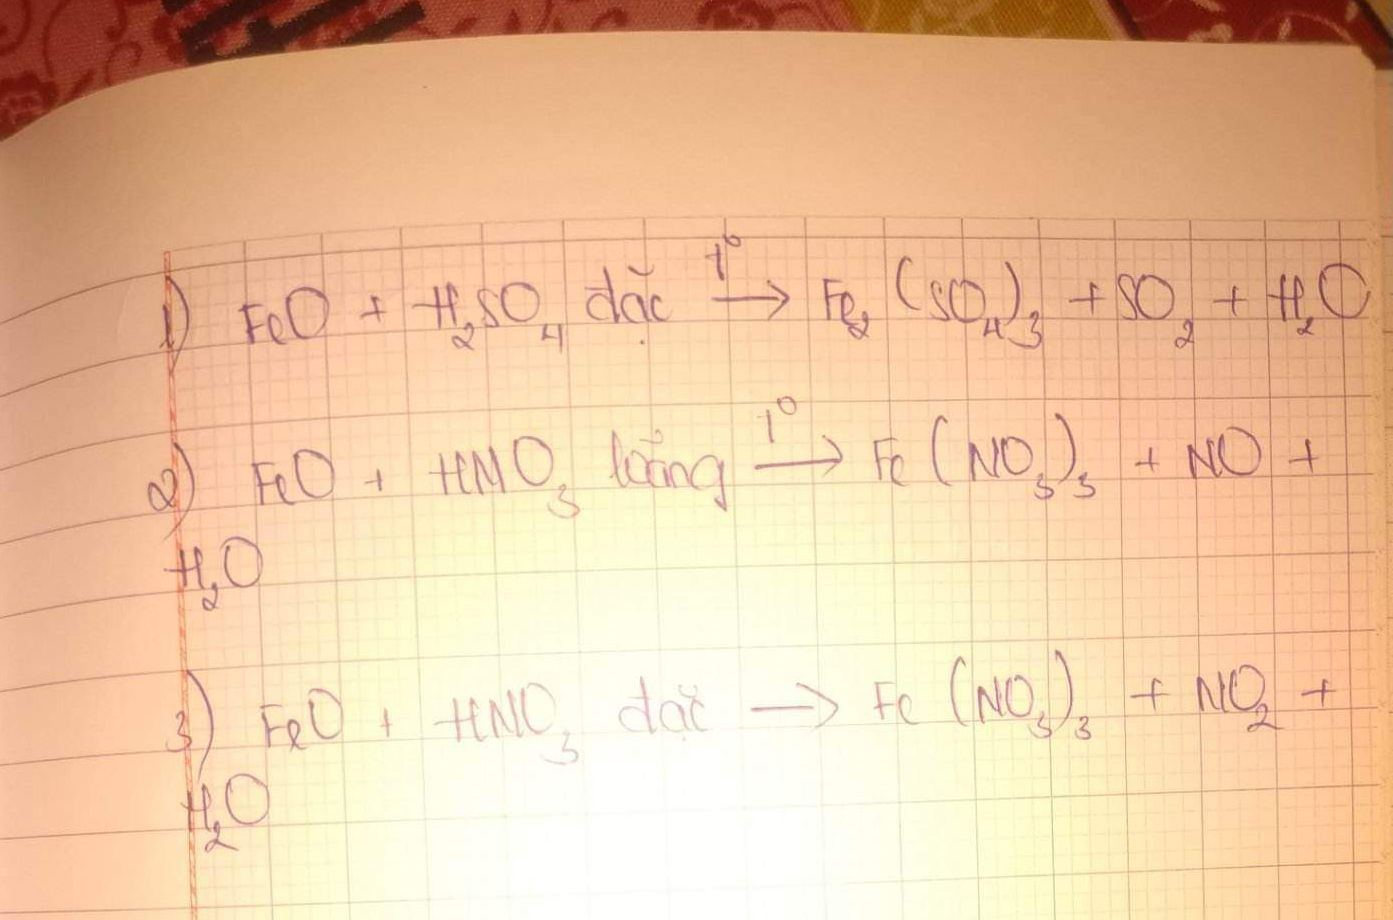 1) FeO + H₂SO₄ đặc t° → Fe₂(SO₄)₃ + SO₂ + H₂O
2) FeO + HNO₃ loãng t° → Fe(NO₃)₃ + NO +
H₂O
3) FeO + HNO₃ đặc → Fe(NO₃)₃ + NO₂ +
H₂O